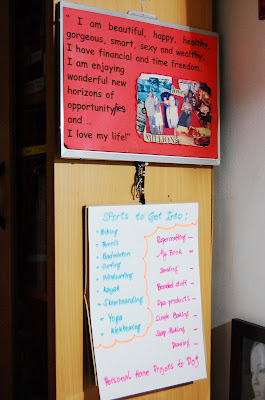 " I am beautiful, happy, healthy,
gorgeous, smart, sexy and wealthy.
I have financial and time freedom.
I am enjoying
wonderful new
horizons of
opportunity/ies
and ..
I love my life!"
MILLIONA
Sports to Get Into:
- Biking
- Tennis
- Badminton
- Surfing
- Windsurfing
- Kayak
- Skateboarding
- Yoga
- Kickboxing
Papercrafting -
My Book -
Sewing -
Beaded stuff -
Spa products -
Candle Making -
Soap Making -
Drawing -
Personal Home Projets to Do